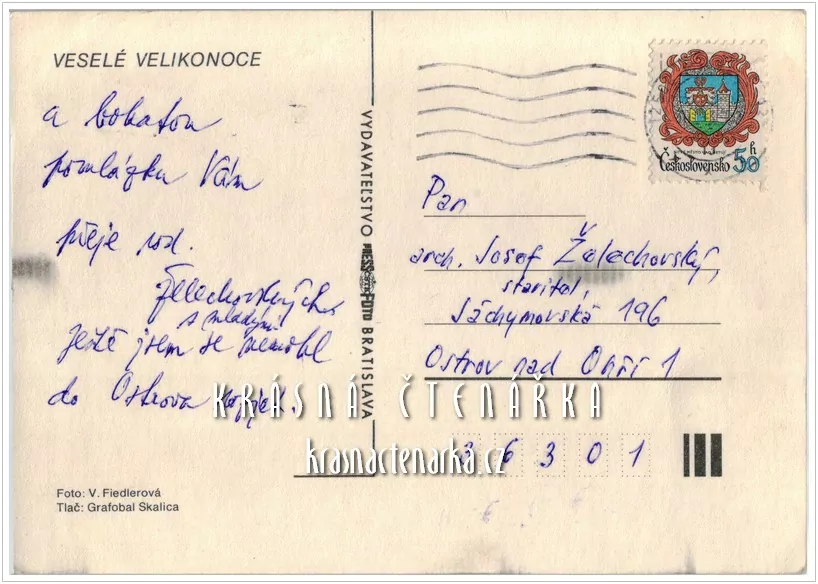 VESELÉ VELIKONOCE
a bohatou
pomlázku Vám
přeje rod.
Želechovských
s mladými
Ještě jsem se nemohl
do Ostrova
Foto: V. Fiedlerová
Tlač: Grafobal Skalica
VYDAVATEĽSTVO PRESSFOTO BRATISLAVA
Československo 50 h
Pan
arch. Josef Želechovský,
stavitel,
Jáchymovská 196
Ostrov nad Ohří 1
36301
KRÁSNÁ ČTENÁŘKA
krasnactenarka.cz